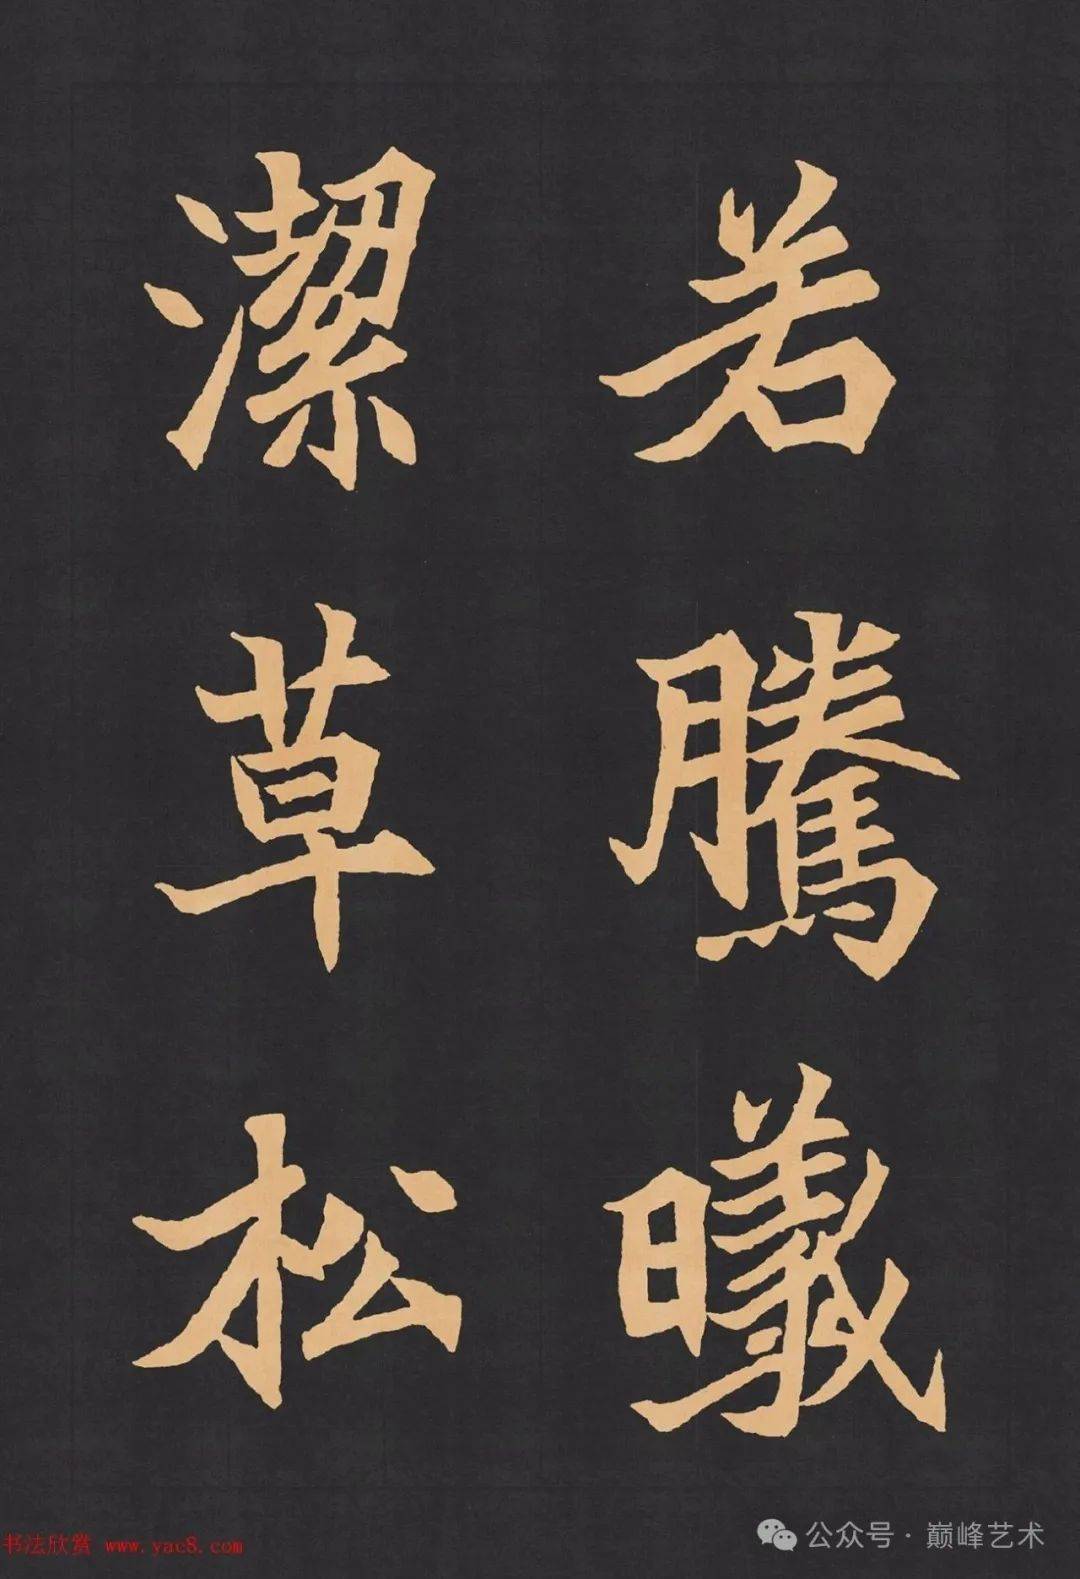 若騰曦
潔草松
书法欣赏 www.yac8.com
公众号 · 巅峰艺术